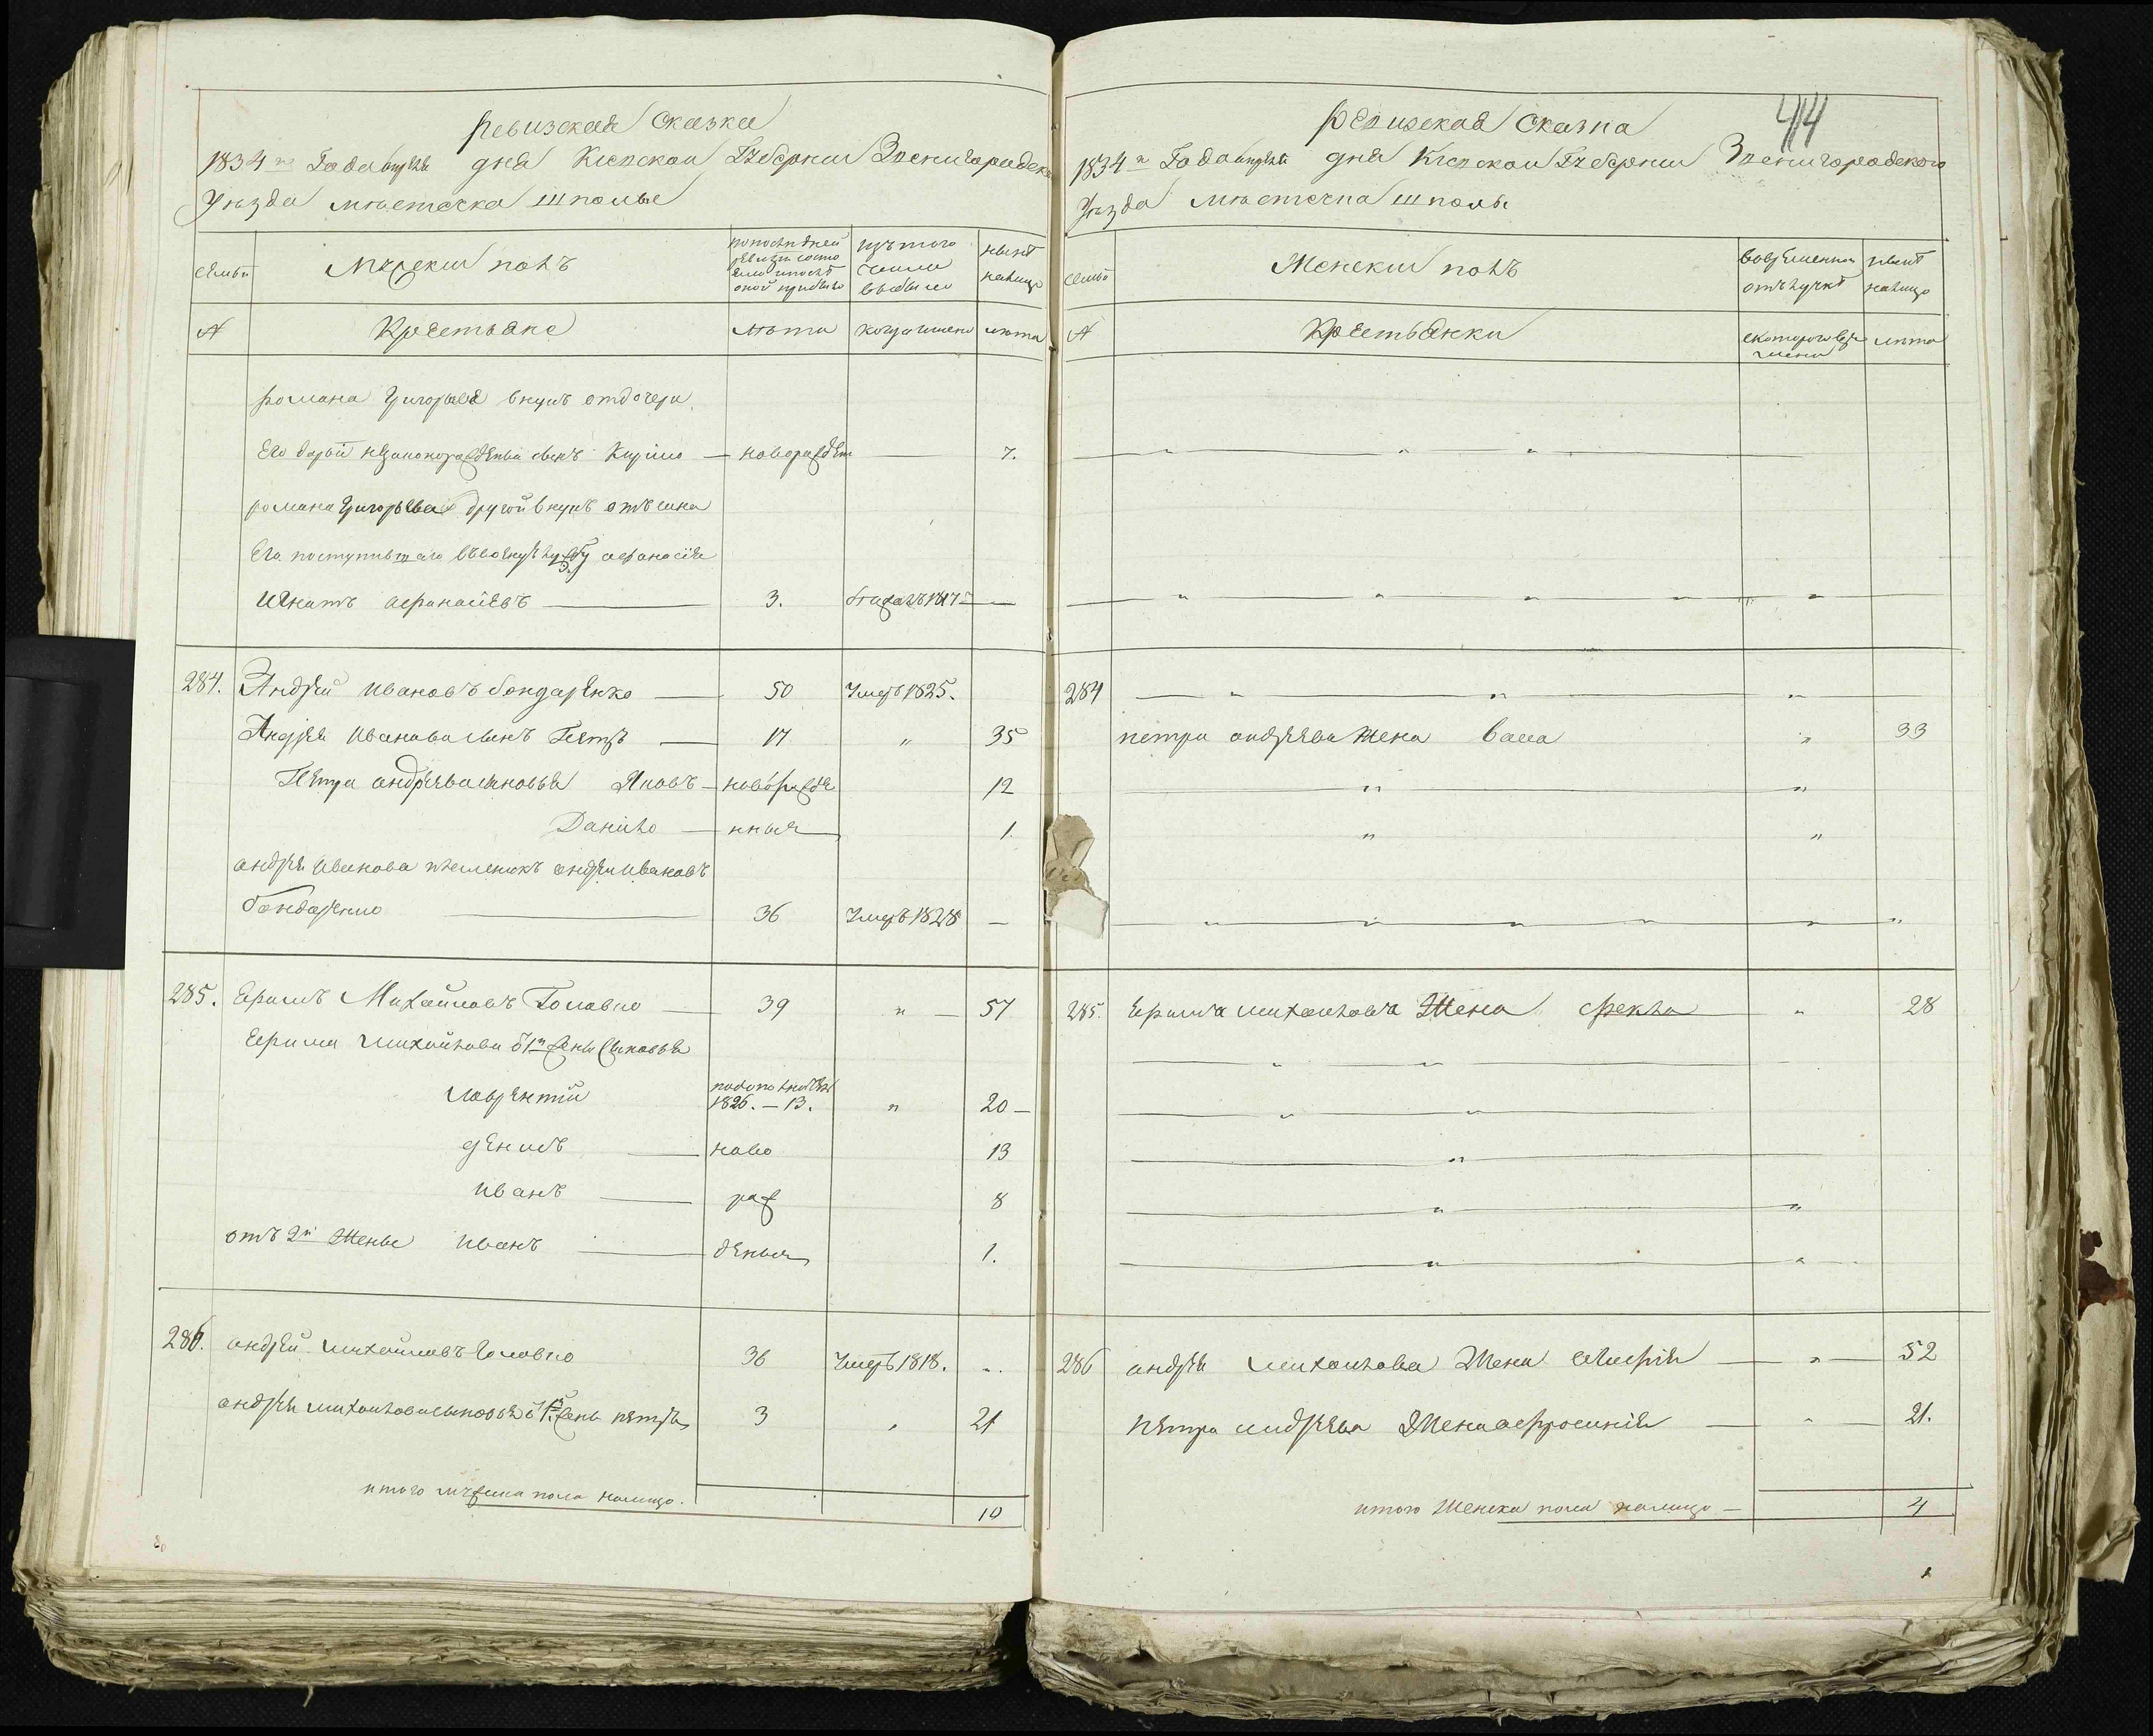 Ревизская Сказка
1834го Года апреля дня Киевской Губернии Звенигородска
Уѣзда мѣстечка Шполы
Семьи
Мужеский полъ
по последней ревизии состояло и после оной прибыло
изъ того числа выбыло
ныне налицо
№
Крестьяне
лѣта
когда имено
лѣта
Романа Григорьева внукъ отдочери
Его дарьи незаконорожденый сынъ Кирило — новорожден 7.
Романа Григорьева другой внукъ отъ сына
Его поступившаго въ военную службу Афанасия
Игнатъ Афанасиевъ — 3. 1817 —
284. Андрей Ивановъ Бондаренко — 50 Умеръ 1825.
Андрея Иванова сынъ Петръ — 17 " 35
Петра Андреева сыновья Яковъ — новорожде 12
Данило — нныя 1.
Андрея Иванова племеникъ Андрей Ивановъ
Бондаренко — 36 Умеръ 1828 —
285. Ефимъ Михайловъ Головко — 39 " — 57
Ефима Михайлова отъ 1й жены сыновья
Лаврентий
1826. — 13. " 20 —
Денисъ — ново 13
Иванъ — рож 8
отъ 2й Жены Иванъ — деныя 1.
286. Андрей Михайловъ Головко 36 Умеръ 1818. —
Андрея Михайлова сыновья отъ 1й жены Петръ 3 " 21
итого мужеска пола налицо. 10
44
Ревизская Сказка
1834го Года апреля дня Киевской Губернии Звенигородского
Уѣзда мѣстечка Шполы
Семьи
Женский полъ
во временной отлучке
ныне налицо
№
Крестьянки
с которого времени
лѣта
284 — " — " — "
Петра Андреева жена Васа " 33
285. Ефима Михайлова Жена Фекла — " 28
286 Андрея Михайлова Жена Мария — " — 52
Петра Андреева Жена Афросиния — " 21.
итого Женска пола налицо — 4